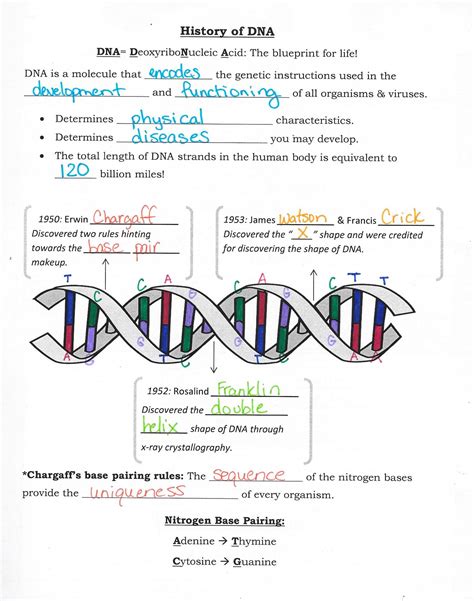 History of DNA
DNA= DeoxyriboNucleic Acid: The blueprint for life!
DNA is a molecule that encodes the genetic instructions used in the
development and functioning of all organisms & viruses.
• Determines physical characteristics.
• Determines diseases you may develop.
• The total length of DNA strands in the human body is equivalent to
120 billion miles!
1950: Erwin Chargaff
Discovered two rules hinting
towards the base pair
makeup.
1953: James Watson & Francis Crick
Discovered the "X" shape and were credited
for discovering the shape of DNA.
T C C A G C A C T T
A G G T C G T G A A
1952: Rosalind Franklin
Discovered the double
helix shape of DNA through
x-ray crystallography.
*Chargaff's base pairing rules: The sequence of the nitrogen bases
provide the uniqueness of every organism.
Nitrogen Base Pairing:
Adenine → Thymine
Cytosine → Guanine